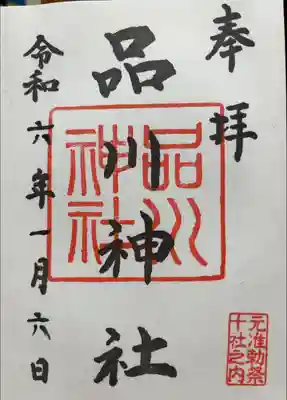 奉拝
品川神社
品川神社
令和六年一月六日
元准勅祭
十社之内